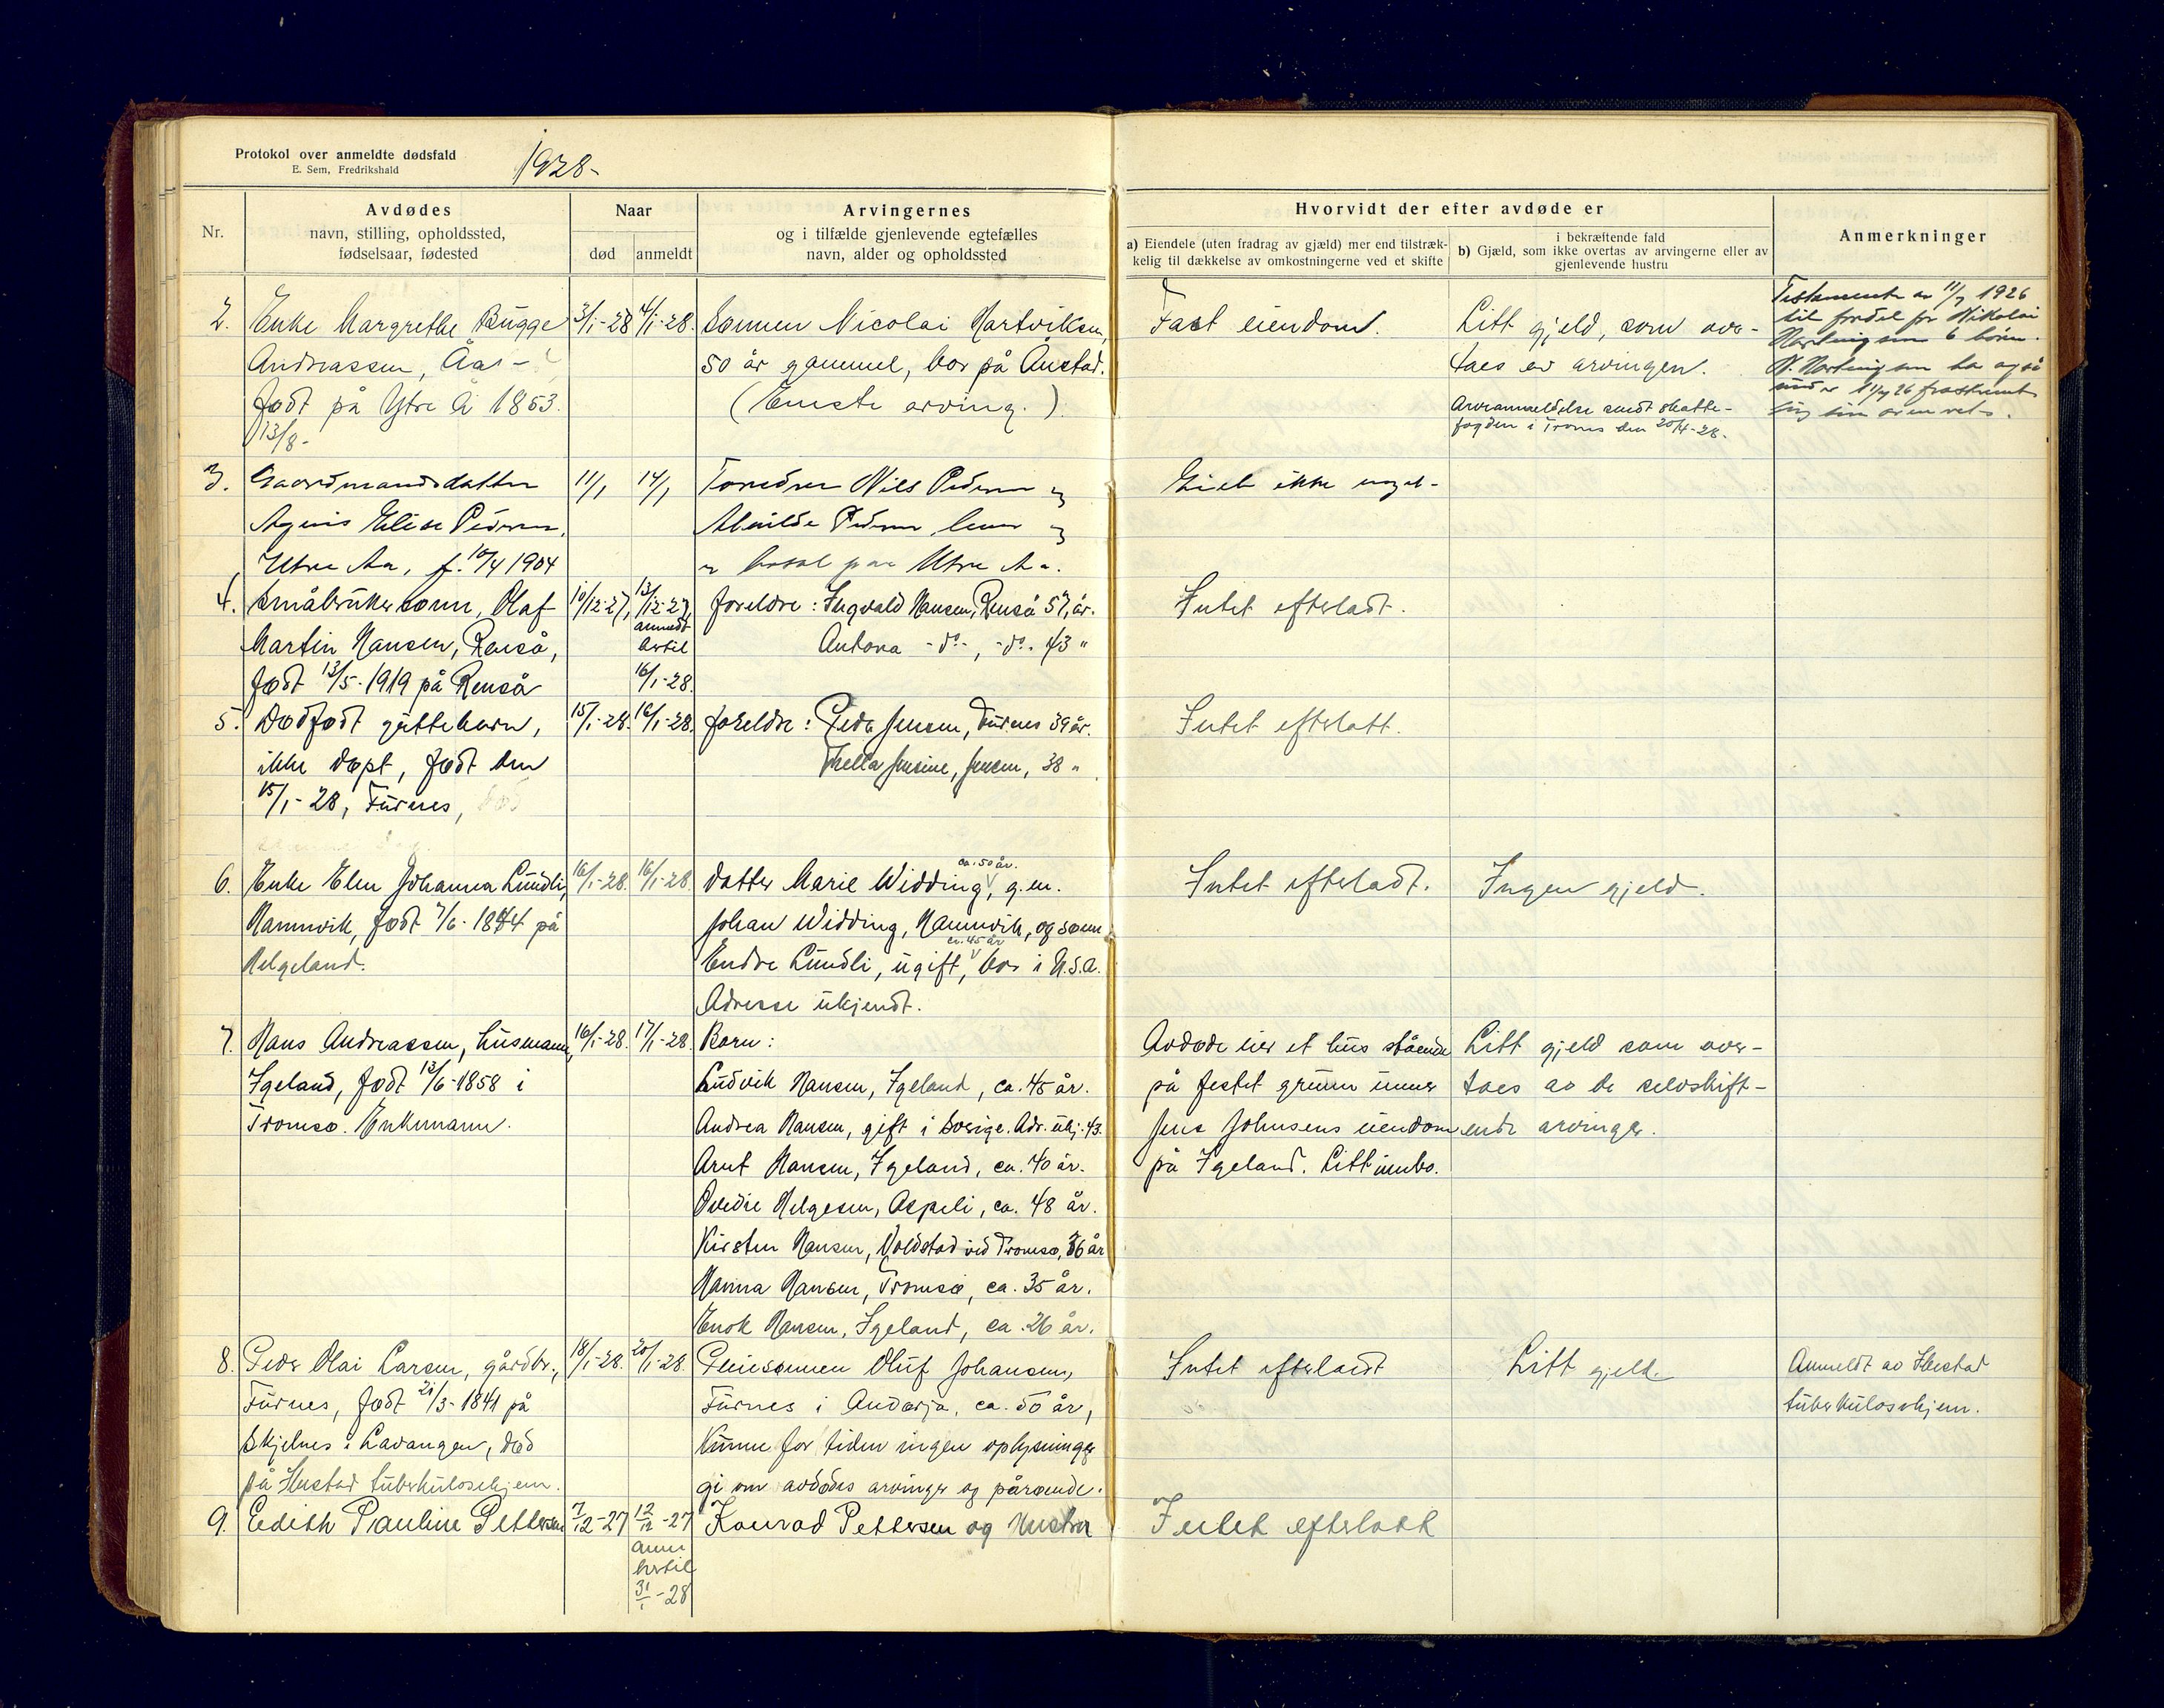 Protokol over anmeldte dødsfald
E. Sem, Fredrikshald
1928-
Nr.
Avdødes
navn, stilling, opholdssted,
fødselsaar, fødested
Naar
død
anmeldt
Arvingernes
og i tilfælde gjenlevende egtefælles
navn, alder og opholdssted
Hvorvidt der efter avdøde er
a) Eiendele (uten fradrag av gjæld) mer end tilstræk-
kelig til dækkelse av omkostningerne ved et skifte
i bekræftende fald
b) Gjæld, som ikke overtas av arvingerne eller av
gjenlevende hustru
Anmerkninger
2. Enke Margrethe Bugge
Andreassen, Åas -
født på Ytre Å 1853.
13/8-
3/1-28
4/1-28.
Sønnen Nicolai Hartviksen,
50 år gammel, bor på Ånstad.
(Eneste arving.)
Fast eiendom.
Litt gjeld, som over-
taes av arvingen.
Arveanmeldelse sendt skatte-
fogden i Troms den 20/4-28.
Testamente av 11/7 1926
til fordel for Nikolai
6 børn.
N. har også
under 11/7 26
3. Gaardmandsdatter
Agnis Elise Pedersen,
Ytre Aa, f. 10/4 1904
11/1
14/1
Forældre Nils Pedersen og
Alvilde Pedersen og
bosat paa Ytre Aa.
Eiet ikke noget-
4. Småbrukersønn, Olaf
Martin Hansen, Renså,
født 13/5-1919 på Renså
10/12-27,
13/12-27,
anmeldt
hertil
16/1-28.
foreldre: Ingvald Hansen, Renså 57, år.
Antona -do-, -do. 43 "
Intet efterladt.
5. Dødfødt guttebarn,
ikke døpt, født den
15/1-28, Furnes,
15/1-28.
16/1-28.
foreldre: Peder Jensen, Furnes 39 år.
Thella Jensine, Jensen, 38 "
Intet efterlatt.
6. Enke Elen Johanna Lundli,
Hamnvik, født 7/6-1844 på
Helgeland.
16/1-28.
16/1-28.
datter Marie Widding, ca. 50 år. g.m.
Johan Widding, Hamnvik, og sønn
Endre Lundli, ugift, ca. 45 år bor i U.S.A.
Adresse ukjendt.
Intet efterladt.
Ingen gjeld.
7. Hans Andreassen, husmann,
Igeland, født 13/6-1858 i
Tromsø. Enkemann.
16/1-28.
17/1-28.
Barn:
Ludvik Hansen, Igeland, ca. 45 år.
Andrea Hansen, gift i Sverige. Adr. ukj. 43.
Arnt Hansen, Igeland, ca. 40 år.
Ovedie Helgesen, Aspeli, ca. 48 år.
Kirsten Hansen, Voldstad ved Tromsø, 36 år
Hanna Hansen, Tromsø, ca. 35 år.
Enok Hansen, Igeland, ca. 26 år.
Avdøde eier et hus stående
på festet grunn under
Jens Johnsens eiendom
på Igeland. Litt innbo.
Litt gjeld som over-
taes av de selvskift-
ende arvinger.
8. Peder Olai Larsen, gårdbr.,
Furnes, født 21/3-1841 på
Skjelnes i Lavangen, død
på Ibestad tuberkulosehjem.
18/1-28.
20/1-28.
Pleiesønnen Oluf Johansen,
Furnes i Andørja, ca. 50 år,
Kunne for tiden ingen oplysninger
gi om avdødes arvinger og pårørende.
Intet efterladt
Litt gjeld.
Anmeldt av Ibestad
tuberkulosehjem.
9. Eedith Pauline Pettersen
7/12-27
12/12-27
anm
hertil
31/1-28
Konrad Pettersen og Hustru
Intet efterlatt